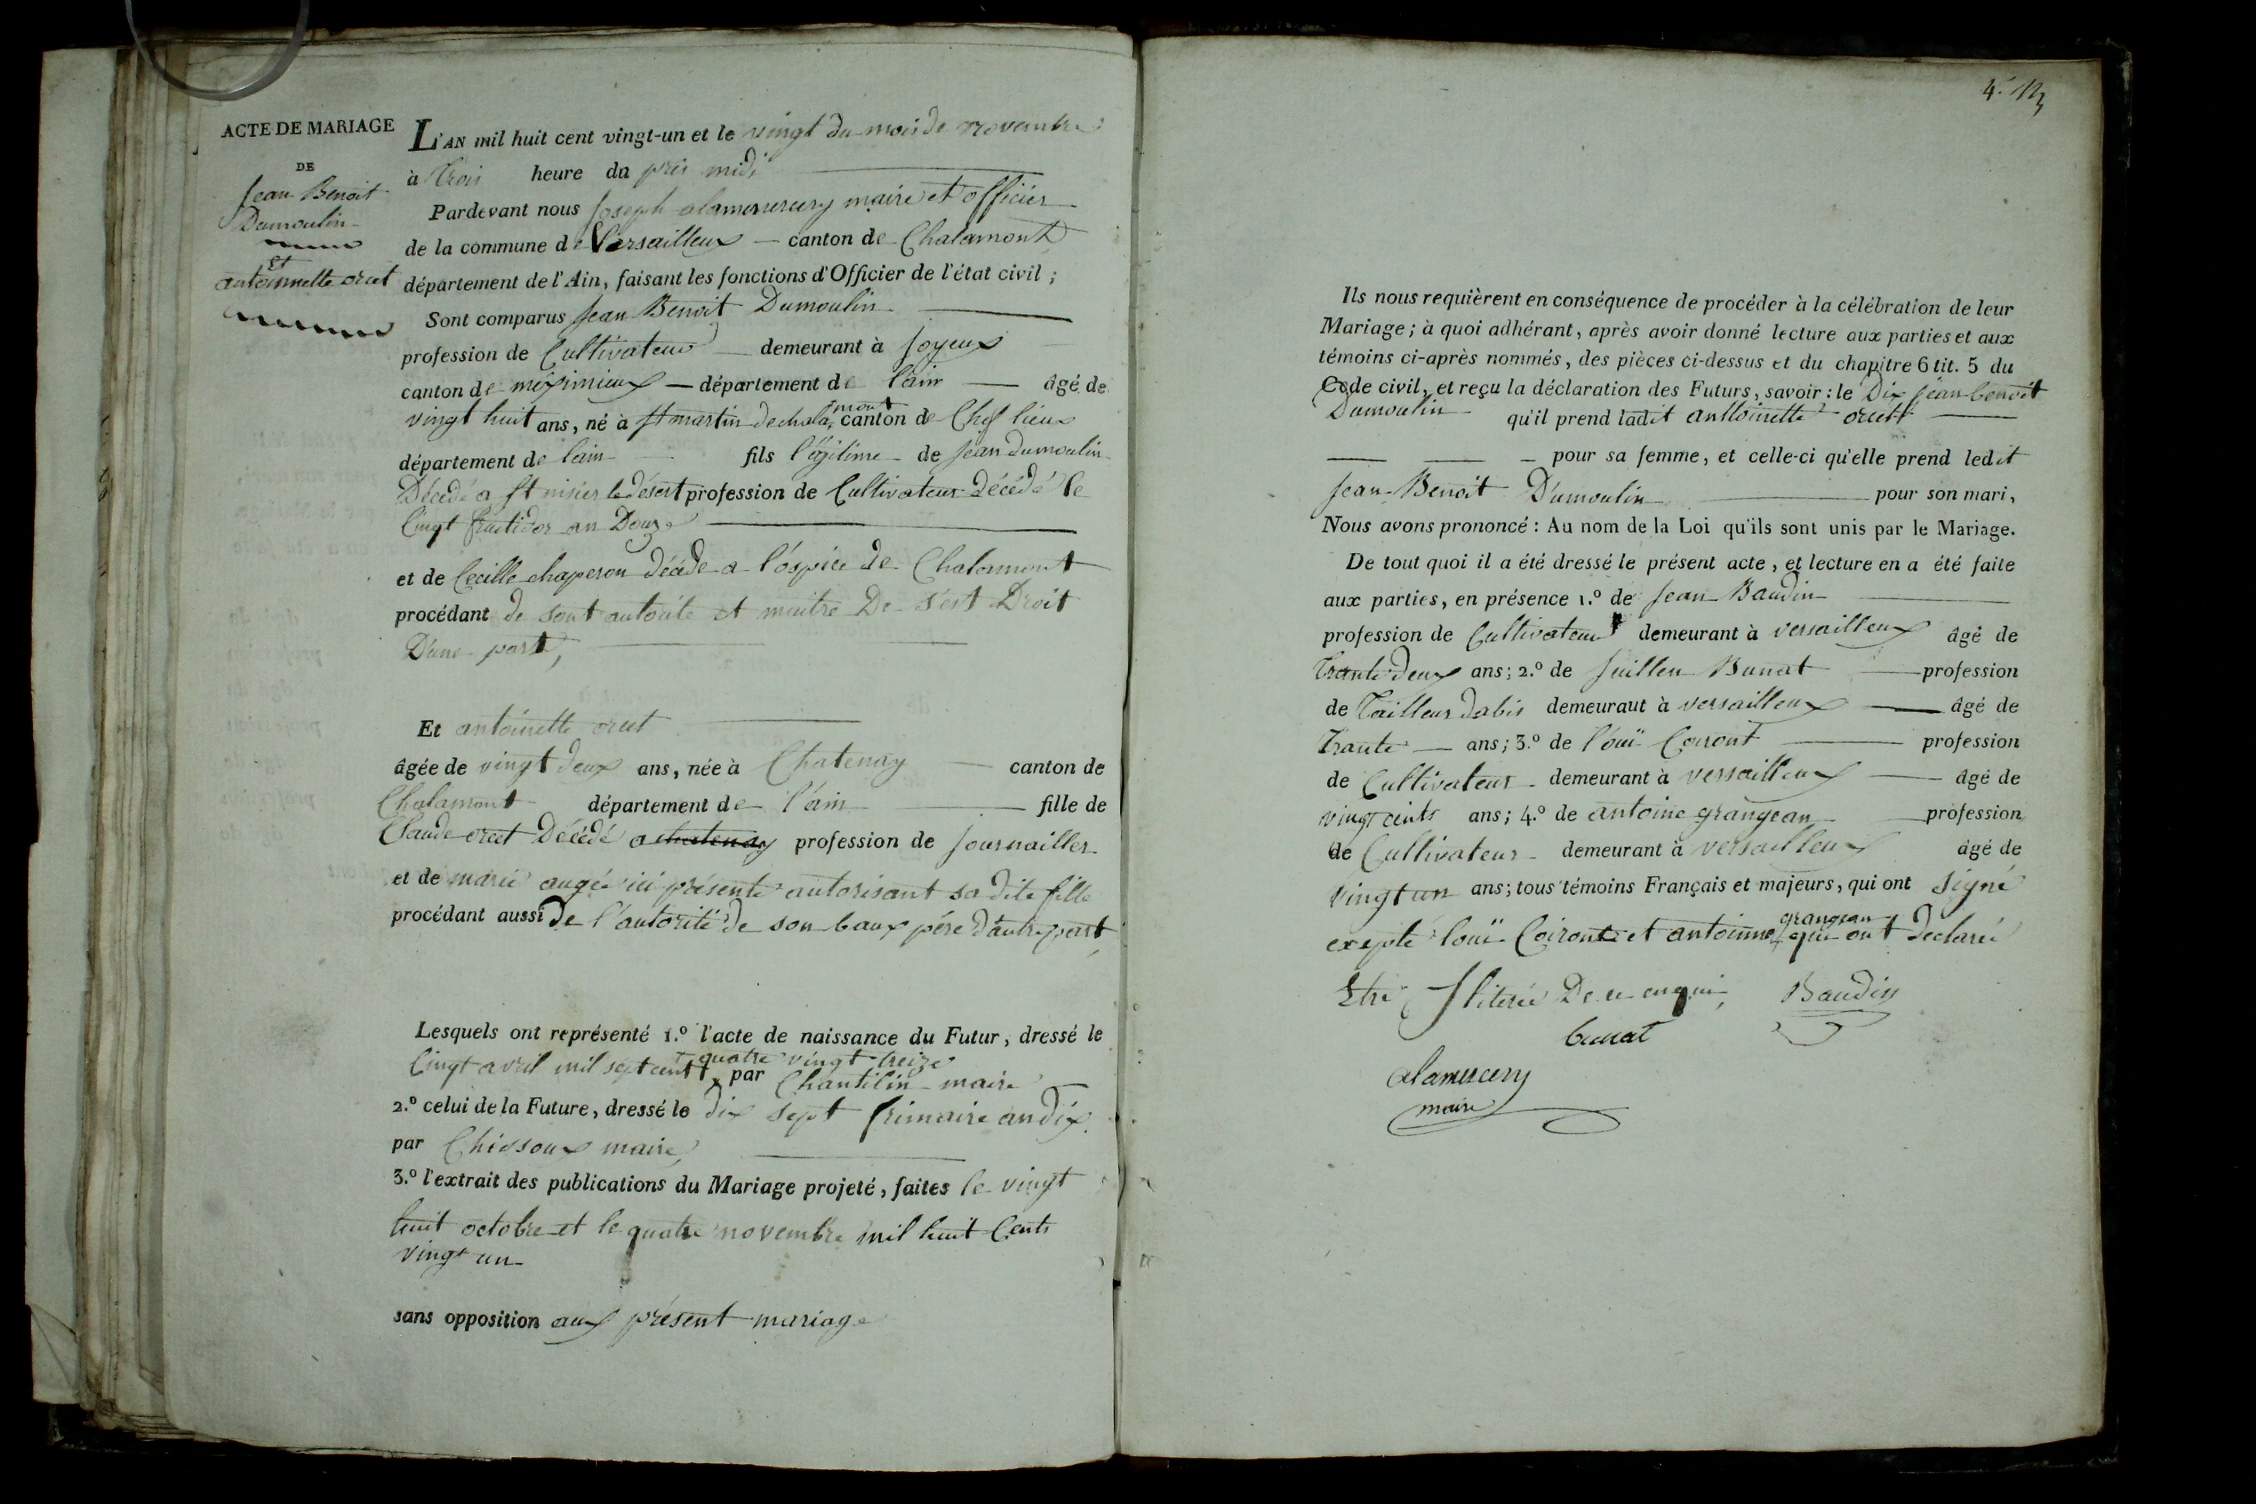 ACTE DE MARIAGE
DE
Jean Benoit
Dumoulin
et
antoinnette orcet
L'AN mil huit cent vingt-un et le vingt du mois de novembre
à trois heure du pris midi
Pardevant nous Joseph alamercery maire et officier
de la commune de Versailleux canton de Chalamont
département de l'Ain, faisant les fonctions d'Officier de l'état civil ;
Sont comparus Jean Benoit Dumoulin
profession de Cultivateur demeurant à Joyeux
canton de meximieux département de l'ain âgé de
vingt huit ans, né à st martin de chalamont canton de Chef lieux
département de lain fils l'égitime de Jean dumoulin
Décédé a st nisier le désert profession de Cultivateur décédé le
Vingt fructidor an Douze
et de Cecille chaperon décéde a l'óspice de Chalamont
procédant de sont autorité et maitre De s'est Droit
D'une part,
Et antoinette orcet
âgée de vingt deux ans, née à Chatenay canton de
Chalamont département de l'ain fille de
Claude orcet Décédé a chatenay profession de Journailler
et de marie augée ici présente autorisant sa dite fille
procédant aussi de l'autorité de son baux pére d'autre part,
Lesquels ont représenté 1.º l'acte de naissance du Futur, dressé le
Vingt avril mil sept cent quatre vingt treize par Chantelin maire
2.º celui de la Future, dressé le dix sept frimaire an dix
par Chiosoux maire,
3.º l'extrait des publications du Mariage projeté, faites le vingt
huit octobre et le quatre novembre mil huit Cents
vingt un
sans opposition aux présent mariage
4.
Ils nous requièrent en conséquence de procéder à la célébration de leur
Mariage ; à quoi adhérant, après avoir donné lecture aux parties et aux
témoins ci-après nommés, des pièces ci-dessus et du chapitre 6 tit. 5 du
Code civil, et reçu la déclaration des Futurs, savoir : le Dix Jean benoit
Dumoulin qu'il prend ladit anttoinette orcet
pour sa femme, et celle-ci qu'elle prend ledit
Jean Benoit D'umoulin pour son mari,
Nous avons prononcé : Au nom de la Loi qu'ils sont unis par le Mariage.
De tout quoi il a été dressé le présent acte, et lecture en a été faite
aux parties, en présence 1.º de Jean Baudin
profession de Cultivateur demeurant à versailleux âgé de
trante deux ans ; 2.º de Juilleu Bunat profession
de Tailleur dabis demeuraut à versailleux âgé de
trante ans ; 3.º de l'ouï Coiront profession
de Cultivateur demeurant à versailleux âgé de
vingt cints ans ; 4.º de antoine grangean profession
de Cultivateur demeurant à versailleux âgé de
vingt un ans ; tous témoins Français et majeurs, qui ont signé
exepté louï Coiront et antoinne grangean qui ont declaréé
Etre Iliteréé De ce enquie, Baudin
bunat
alamercery
maire